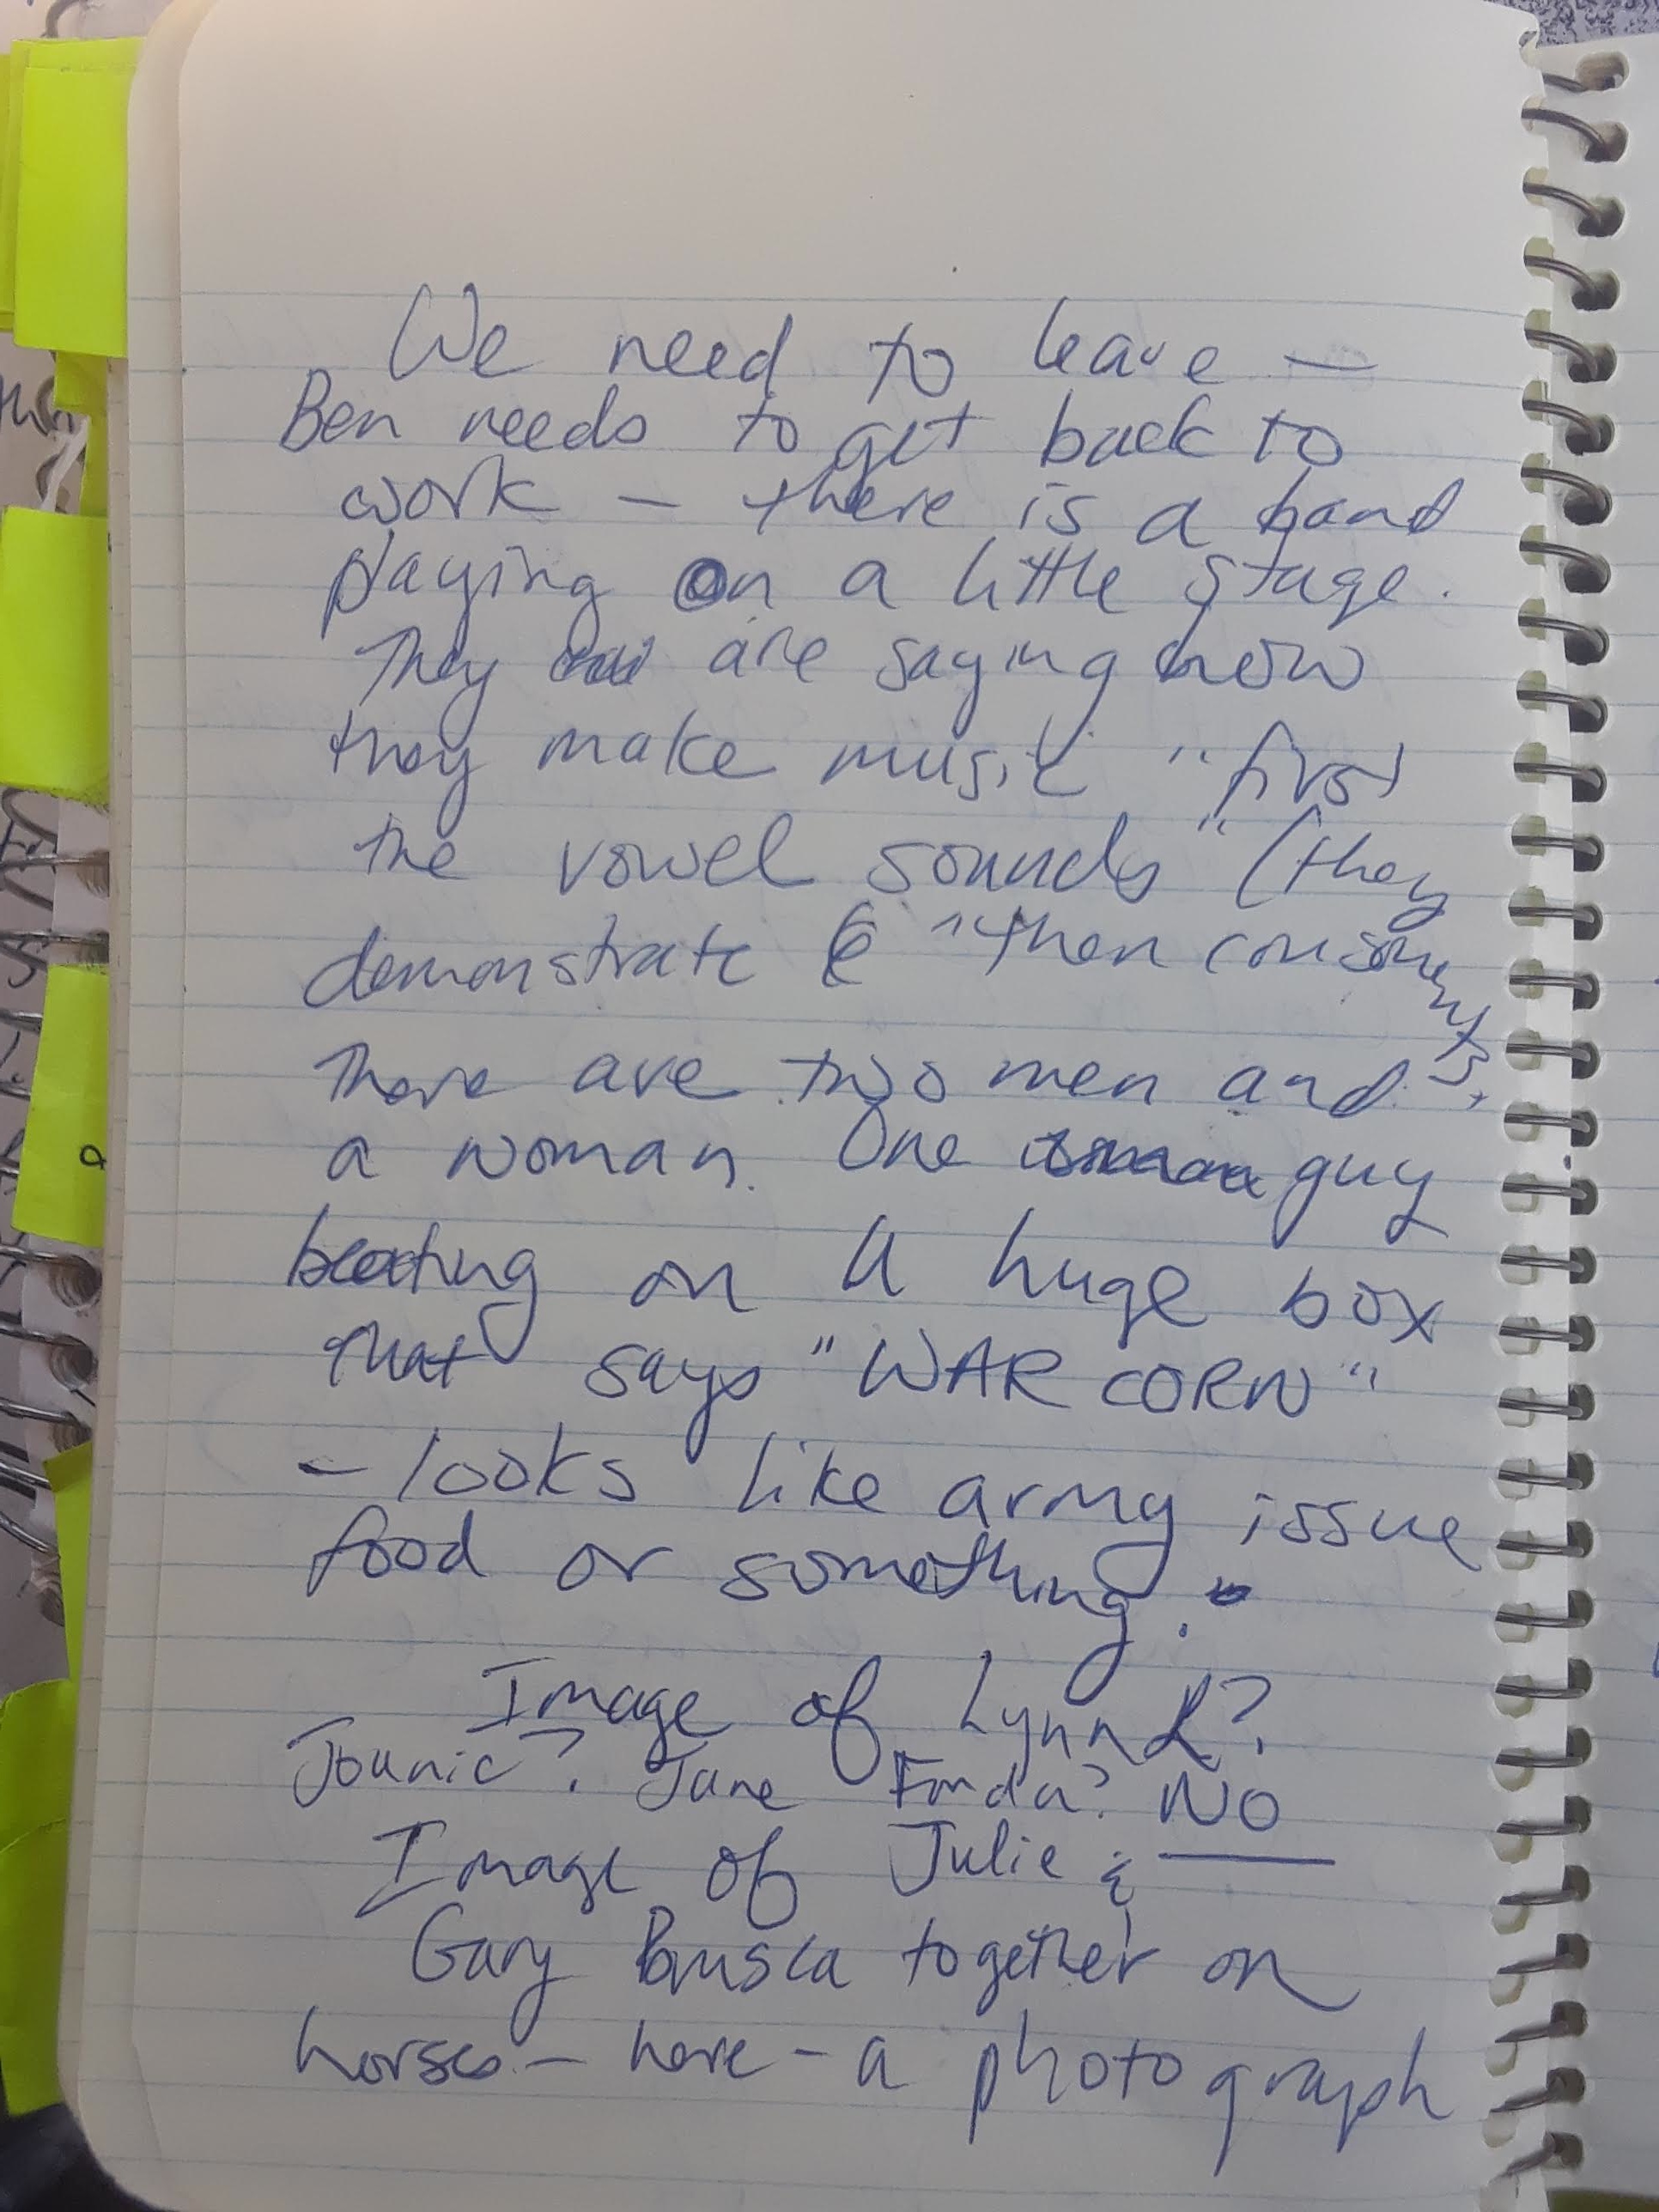 We need to leave —
Ben needs to get back to
work — there is a band
playing on a little stage.
They are saying how
they make music "first
the vowel sounds" (they
demonstrate & "then consonents.
There are two men and
a woman. One guy
beating on a huge box
that says "WAR CORN"
- looks like army issue
food or something.
Image of Lynn R?
Jounic? Jane Fonda? NO
Image of Julie &
Gary Brusca together on
horses - here - a photograph